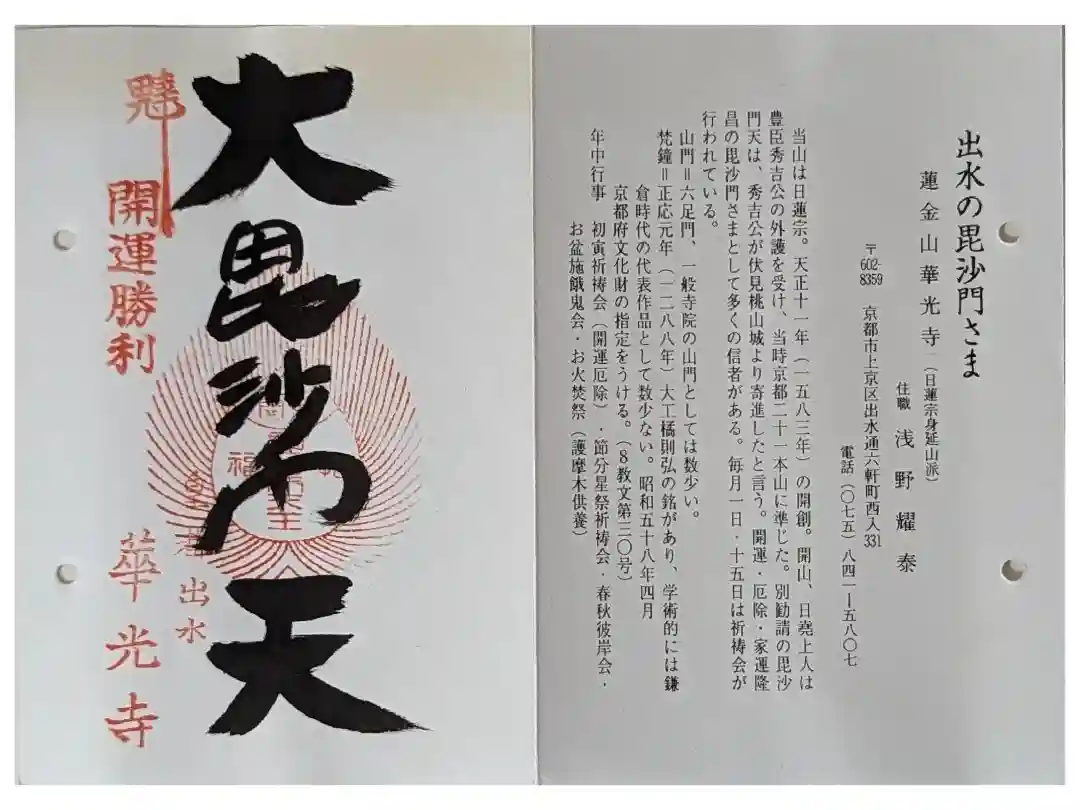 出水の毘沙門さま
蓮金山華光寺（日蓮宗身延山派）
住職 浅野耀泰
〒602-8359 京都市上京区出水通六軒町西入331
電話（〇七五）八四一ー五八〇七
当山は日蓮宗。天正十一年（一五八三年）の開創。開山、日堯上人は
豊臣秀吉公の外護を受け、当時京都二十一本山に準じた。別勧請の毘沙
門天は、秀吉公が伏見桃山城より寄進したと言う。開運・厄除・家運隆
昌の毘沙門さまとして多くの信者がある。毎月一日・十五日は祈祷会が
行われている。
山門＝六足門、一般寺院の山門としては数少い。
梵鐘＝正応元年（一二八八年）大工橘則弘の銘があり、学術的には鎌
倉時代の代表作品として数少ない。昭和五十八年四月
京都府文化財の指定をうける。（8教文第三〇号）
年中行事 初寅祈祷会（開運厄除）・節分星祭祈祷会・春秋彼岸会・
お盆施餓鬼会・お火焚祭（護摩木供養）
大毘沙門天
出水
開運勝利
華光寺